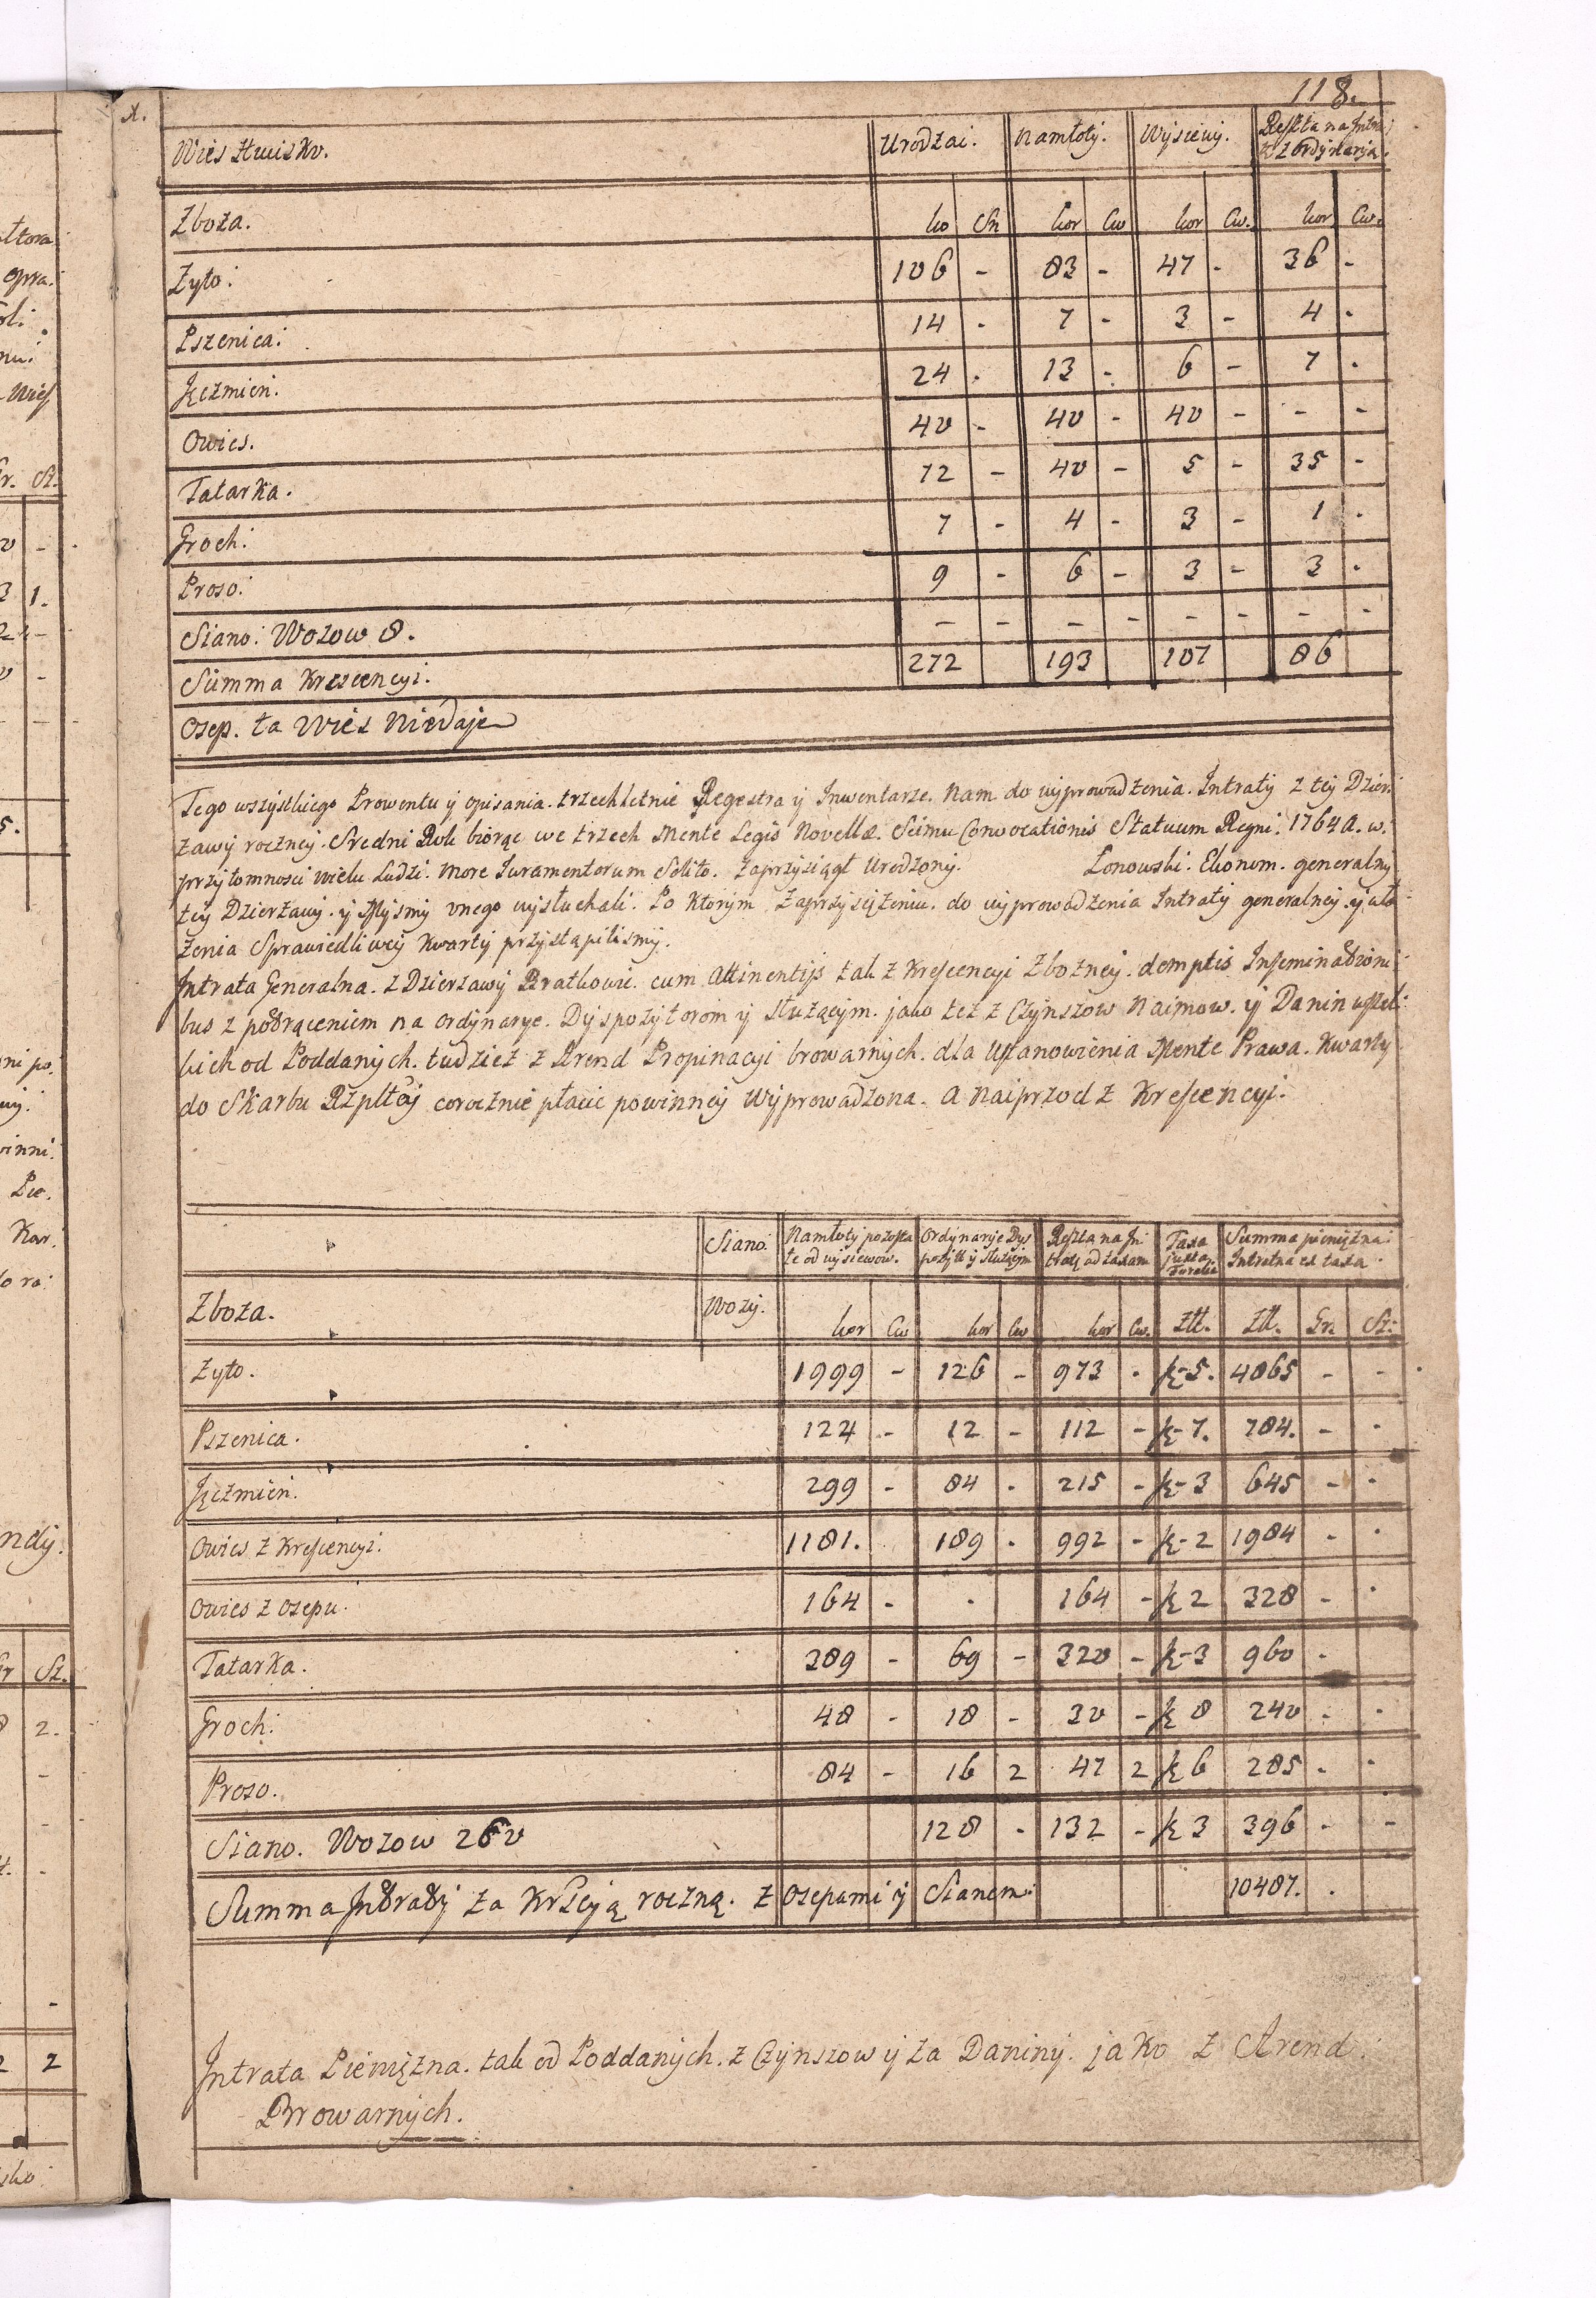 118.
Wieś Hwizko. Urodzai. Namłoty. Wysiewy. Reszta na Intra: tę z Ordynaryą.
Zboza. ko Cw kor Cw kor Cw. kor Cw.
Zyto: 106 - 83 - 47 - 36 -
Pszenica: 14 - 7 - 3 - 4 -
Jęczmień. 24 - 13 - 6 - 7 -
Owies. 40 - 40 - 40 - - -
Tatarka. 72 - 40 - 5 - 35 -
Groch: 7 - 4 - 3 - 1 -
Proso: 9 - 6 - 3 - 3 -
Siano: Wozow 8. - - - - - - - -
Summa Krescencyi. 272 193 107 86
Osep. ta Wies Niedaje
Tego wszystkiego Prowentu y opisania. trzechletnie Regestra y Inwentarze. Nam do wyprowadzenia. Intraty z tey Dzier:
zawy roczney. Sredni Rok biorąc we trzech Mente Legis Novellæ. Seimu Convocationis Statuum Regni. 1764 A. w.
przytomnosci wielu Ludzi. more Juramentorum Solito. Zaprzysiągł Urodzony. Lonowski. Ekonom. generalny
tey Dzierzawy. y Mysmy onego wysłuchali. Po Ktorym Zaprzysięzeniu. do wyprowadzenia Intraty generalney. y uło
zenia Sprawiedliwey Kwarty przystąpilismy.
Intrata Generalna. z Dzierzawy Bratkowic. cum Attinentijs tak z Krescencyi Zbozney. demptis Inseminationi:
bus z potrąceniem na Ordynarye. Dyspozytorom y słuzącym. jako tez z Czynszow Naimow. y Danin wszel:
kich od Poddanych. tudziez z Arend Propinacyi browarnych. dla Ustanowienia Mente Prawa. Kwarty
do Skarbu Rzpltey corocznie płacic powinney Wyprowadzona. A naiprzod z Krescencyi.
Siano. Namłoty pozosta łe od wysiewow. Ordynarye Dys pozyt: y słuzącym Reszta na In: tratę od taxam Taxa juxta Summa pieniężna: Intratna ex taxa.
Zboza. Wozy. kor Cw kor Cw kor Cw. Złł. Złł. Gr. Sz:
Zyto. 1999 - 126 - 973 - po 5. 4865 - -
Pszenica. 124 - 12 - 112 - po 7. 784. - -
Jęczmień. 299 - 84 - 215 - po 3 645 - -
Owies z Krescencyi. 1181. 189 - 992 - po 2 1984 - -
Owies z Osepu. 164 - - 164 - po 2 328 - -
Tatarka. 389 - 69 - 320 - po 3 960 -
Groch: 48 - 18 - 30 - po 8 240 - -
Proso. 84 - 16 2 47 2 po 6 285 - -
Siano. Wozow 260 128 - 132 - po 3 396 - -
Summa Intraty za Krscyą roczną. z Osepami y Sianem: 10487. .
Intrata Pieniężna. tak od Poddanych. z Czynszow y za Daniny. jako z Arend.
Browarnych.